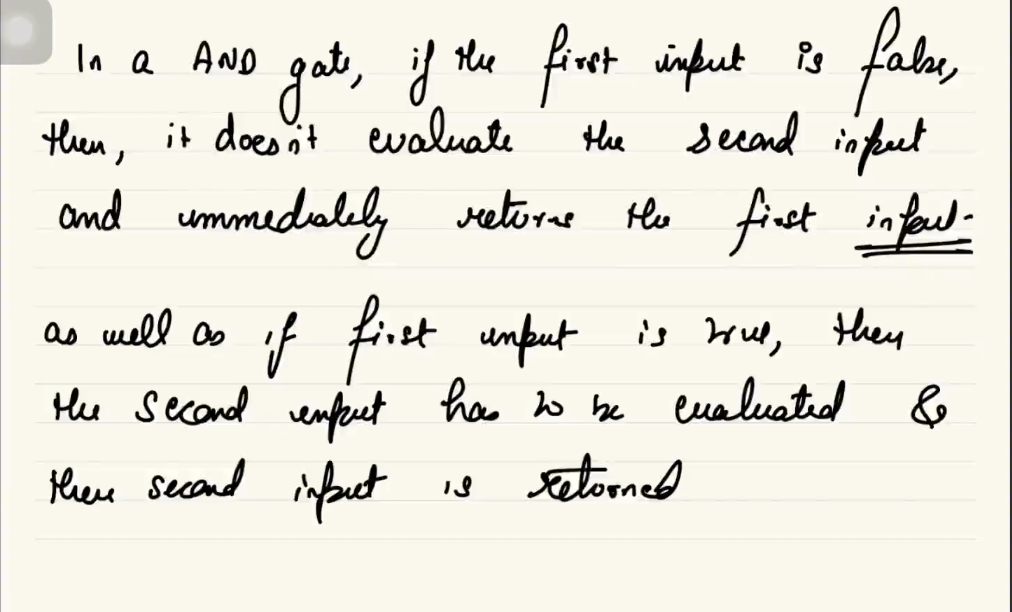 In a AND gate, if the first input is false,
then, it doesn't evaluate the second input
and immediately returns the first input.
as well as if first input is true, then
the second input has to be evaluated &
then second input is returned